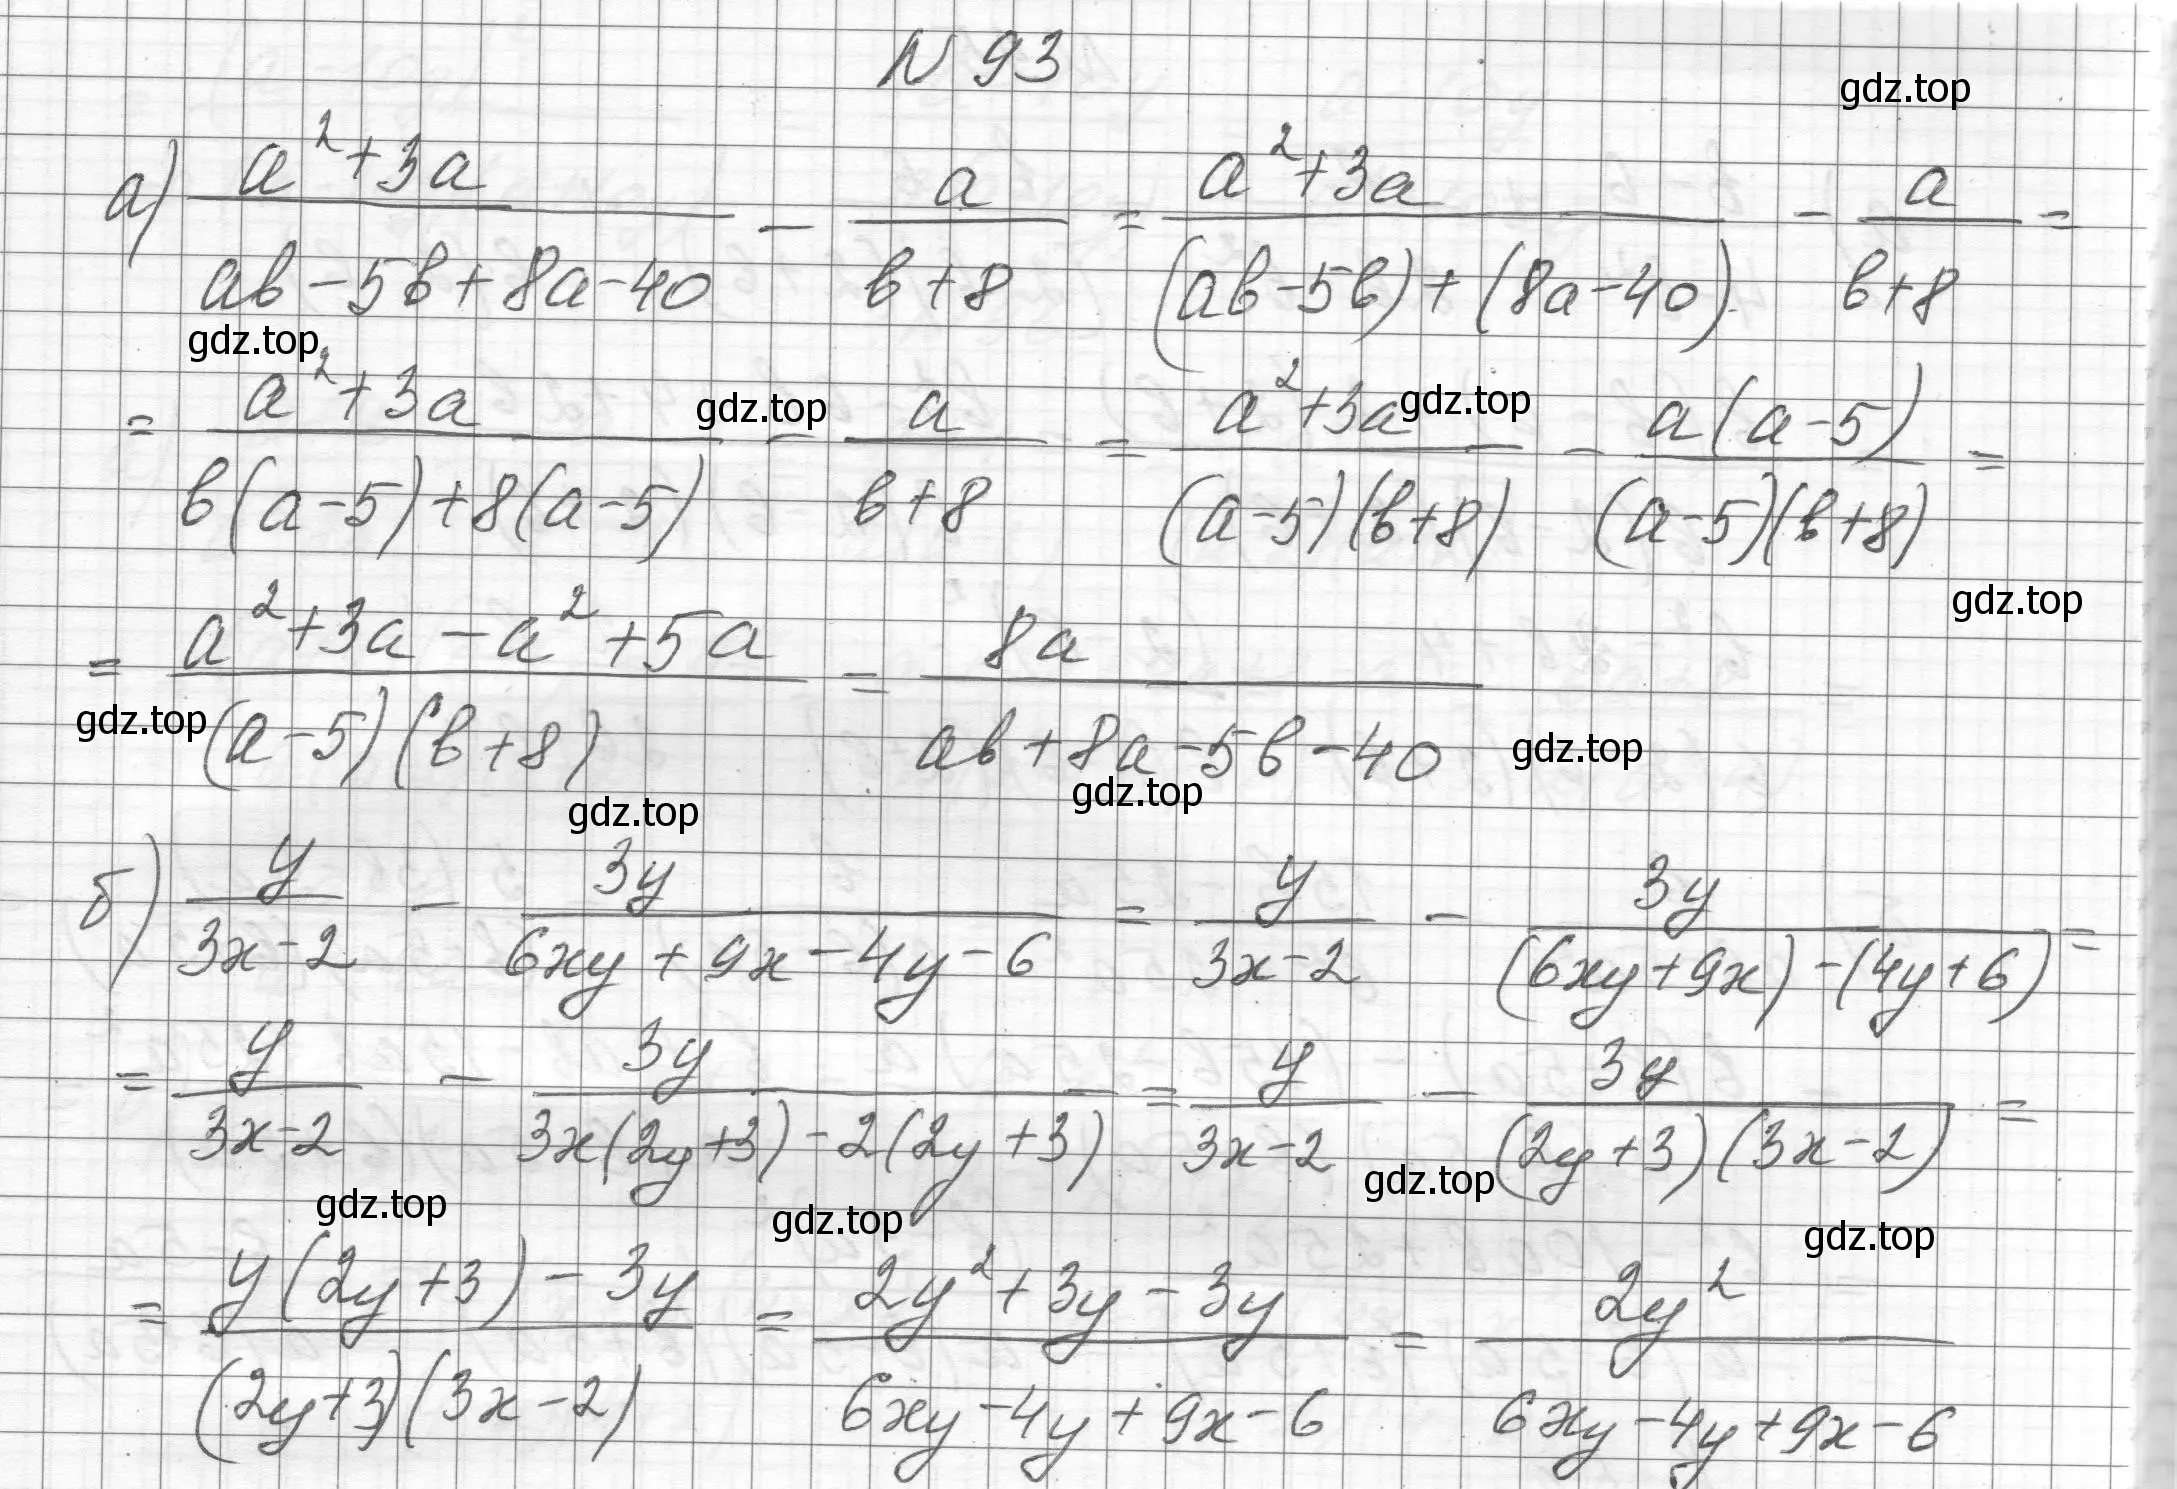 N 93
gdz.top
а) (a²+3a)/(ab-5b+8a-40) - a/(b+8) = (a²+3a)/((ab-5b)+(8a-40)) - a/(b+8) =
gdz.top
= (a²+3a)/(b(a-5)+8(a-5)) - a/(b+8) = (a²+3a)/((a-5)(b+8)) - a(a-5)/((a-5)(b+8)) =
gdz.top
gdz.top
gdz.top
= (a²+3a-a²+5a)/((a-5)(b+8)) = 8a/(ab+8a-5b-40)
gdz.top
gdz.top
gdz.top
gdz.top
б) y/(3x-2) - 3y/(6xy+9x-4y-6) = y/(3x-2) - 3y/((6xy+9x)-(4y+6)) =
= y/(3x-2) - 3y/(3x(2y+3)-2(2y+3)) = y/(3x-2) - 3y/((2y+3)(3x-2)) =
gdz.top
gdz.top
gdz.top
gdz.top
= (y(2y+3)-3y)/((2y+3)(3x-2)) = (2y²+3y-3y)/(6xy-4y+9x-6) = 2y²/(6xy-4y+9x-6)